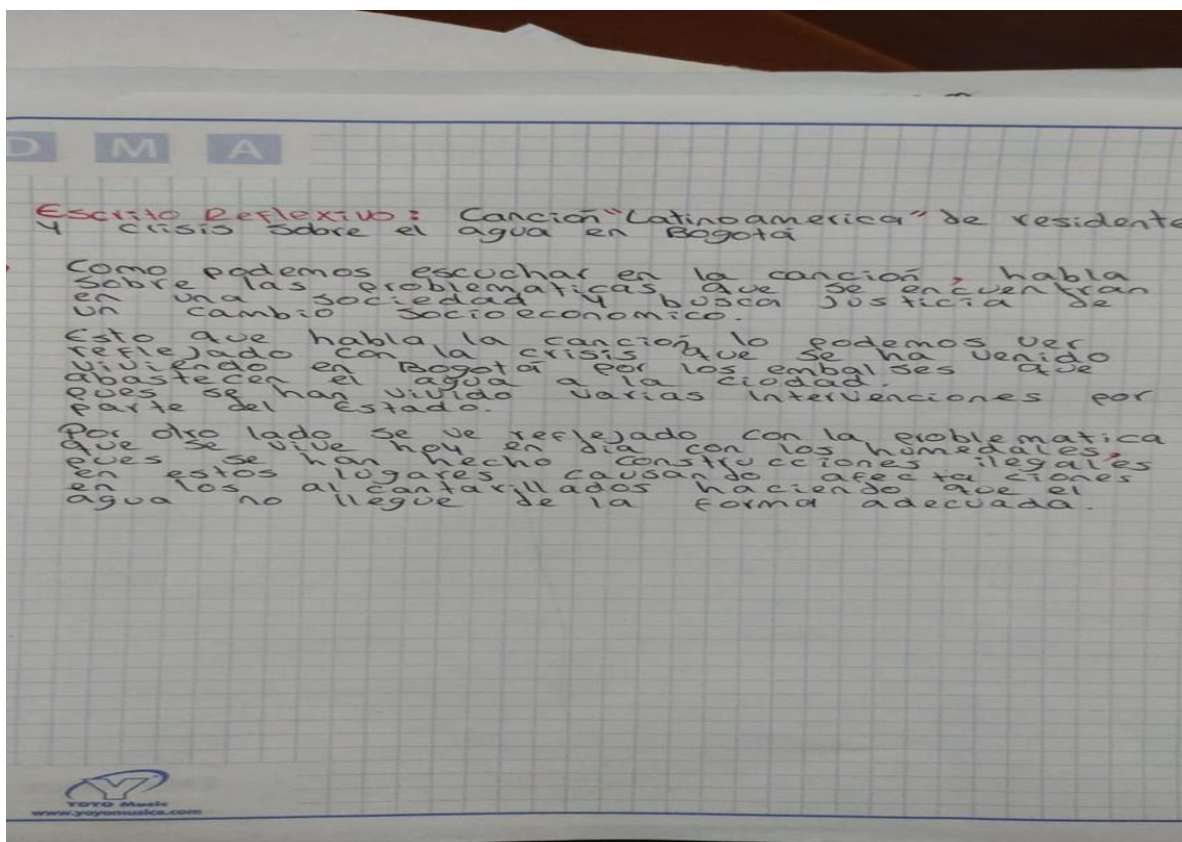 D M A
Escrito Reflexivo: Canción "Latinoamerica" de residente
y crisis sobre el agua en Bogotá
Como podemos escuchar en la canción, habla
sobre las problematicas que se encuentran
en una sociedad y busca justicia de
un cambio socioeconomico.
Esto que habla la canción lo podemos ver
reflejado con la crisis que se ha venido
viviendo en Bogotá por los embalses que
abastecen el agua a la ciudad.
pues se han vivido varias intervenciones por
parte del Estado.
Por otro lado se ve reflejado con la problematica
que se vive hoy en dia con los humedales,
pues se han hecho construcciones ilegales
en estos lugares causando afectaciones
en los alcantarillados haciendo que el
agua no llegue de la forma adecuada.
YOYO Music
www.yoyomusica.com